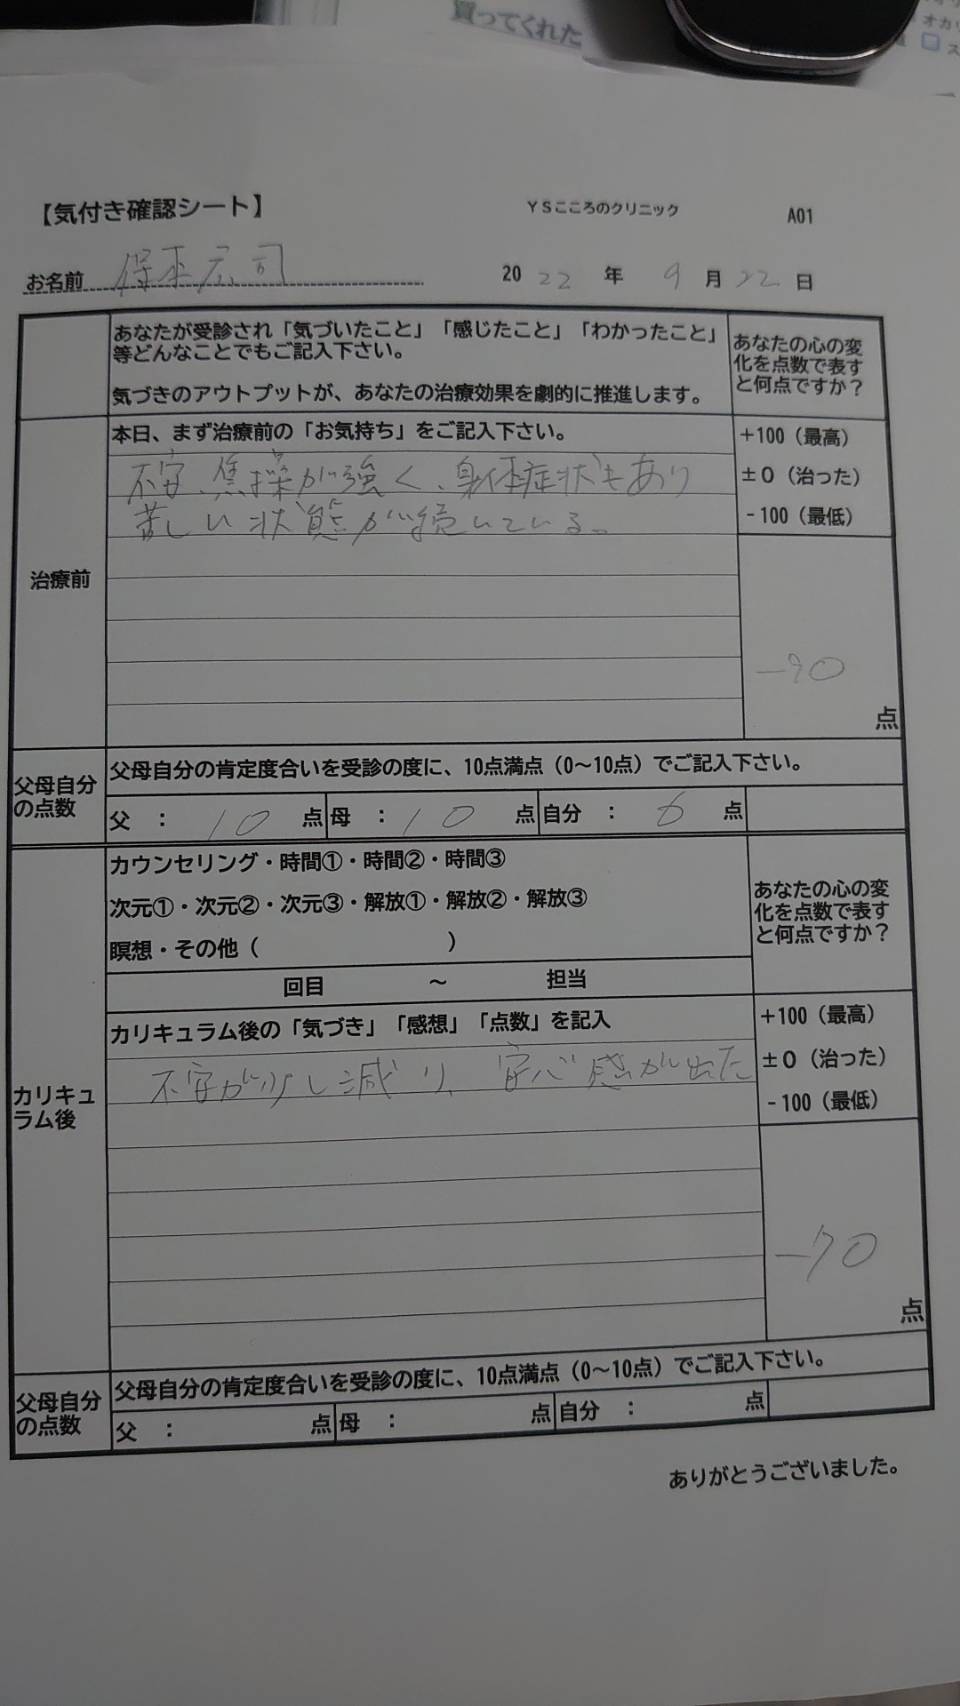 買ってくれた
【気付き確認シート】
YSこころのクリニック
A01
お名前 保本広司
2022年9月22日
あなたが受診され「気づいたこと」「感じたこと」「わかったこと」
等どんなことでもご記入下さい。
気づきのアウトプットが、あなたの治療効果を劇的に推進します。
あなたの心の変
化を点数で表す
と何点ですか？
治療前
本日、まず治療前の「お気持ち」をご記入下さい。
不安、焦操が強く、身体症状もあり
苦しい状態が続いている。
+100（最高）
±0（治った）
-100（最低）
-90
点
父母自分
の点数
父母自分の肯定度合いを受診の度に、10点満点（0～10点）でご記入下さい。
父 ： 10 点 母 ： 10 点 自分 ： 6 点
カリキュ
ラム後
カウンセリング・時間①・時間②・時間③
次元①・次元②・次元③・解放①・解放②・解放③
瞑想・その他（ ）
回目 ～ 担当
あなたの心の変
化を点数で表す
と何点ですか？
カリキュラム後の「気づき」「感想」「点数」を記入
不安が少し減り、安心感が出た
+100（最高）
±0（治った）
-100（最低）
-70
点
父母自分
の点数
父母自分の肯定度合いを受診の度に、10点満点（0～10点）でご記入下さい。
父 ： 点 母 ： 点 自分 ： 点
ありがとうございました。